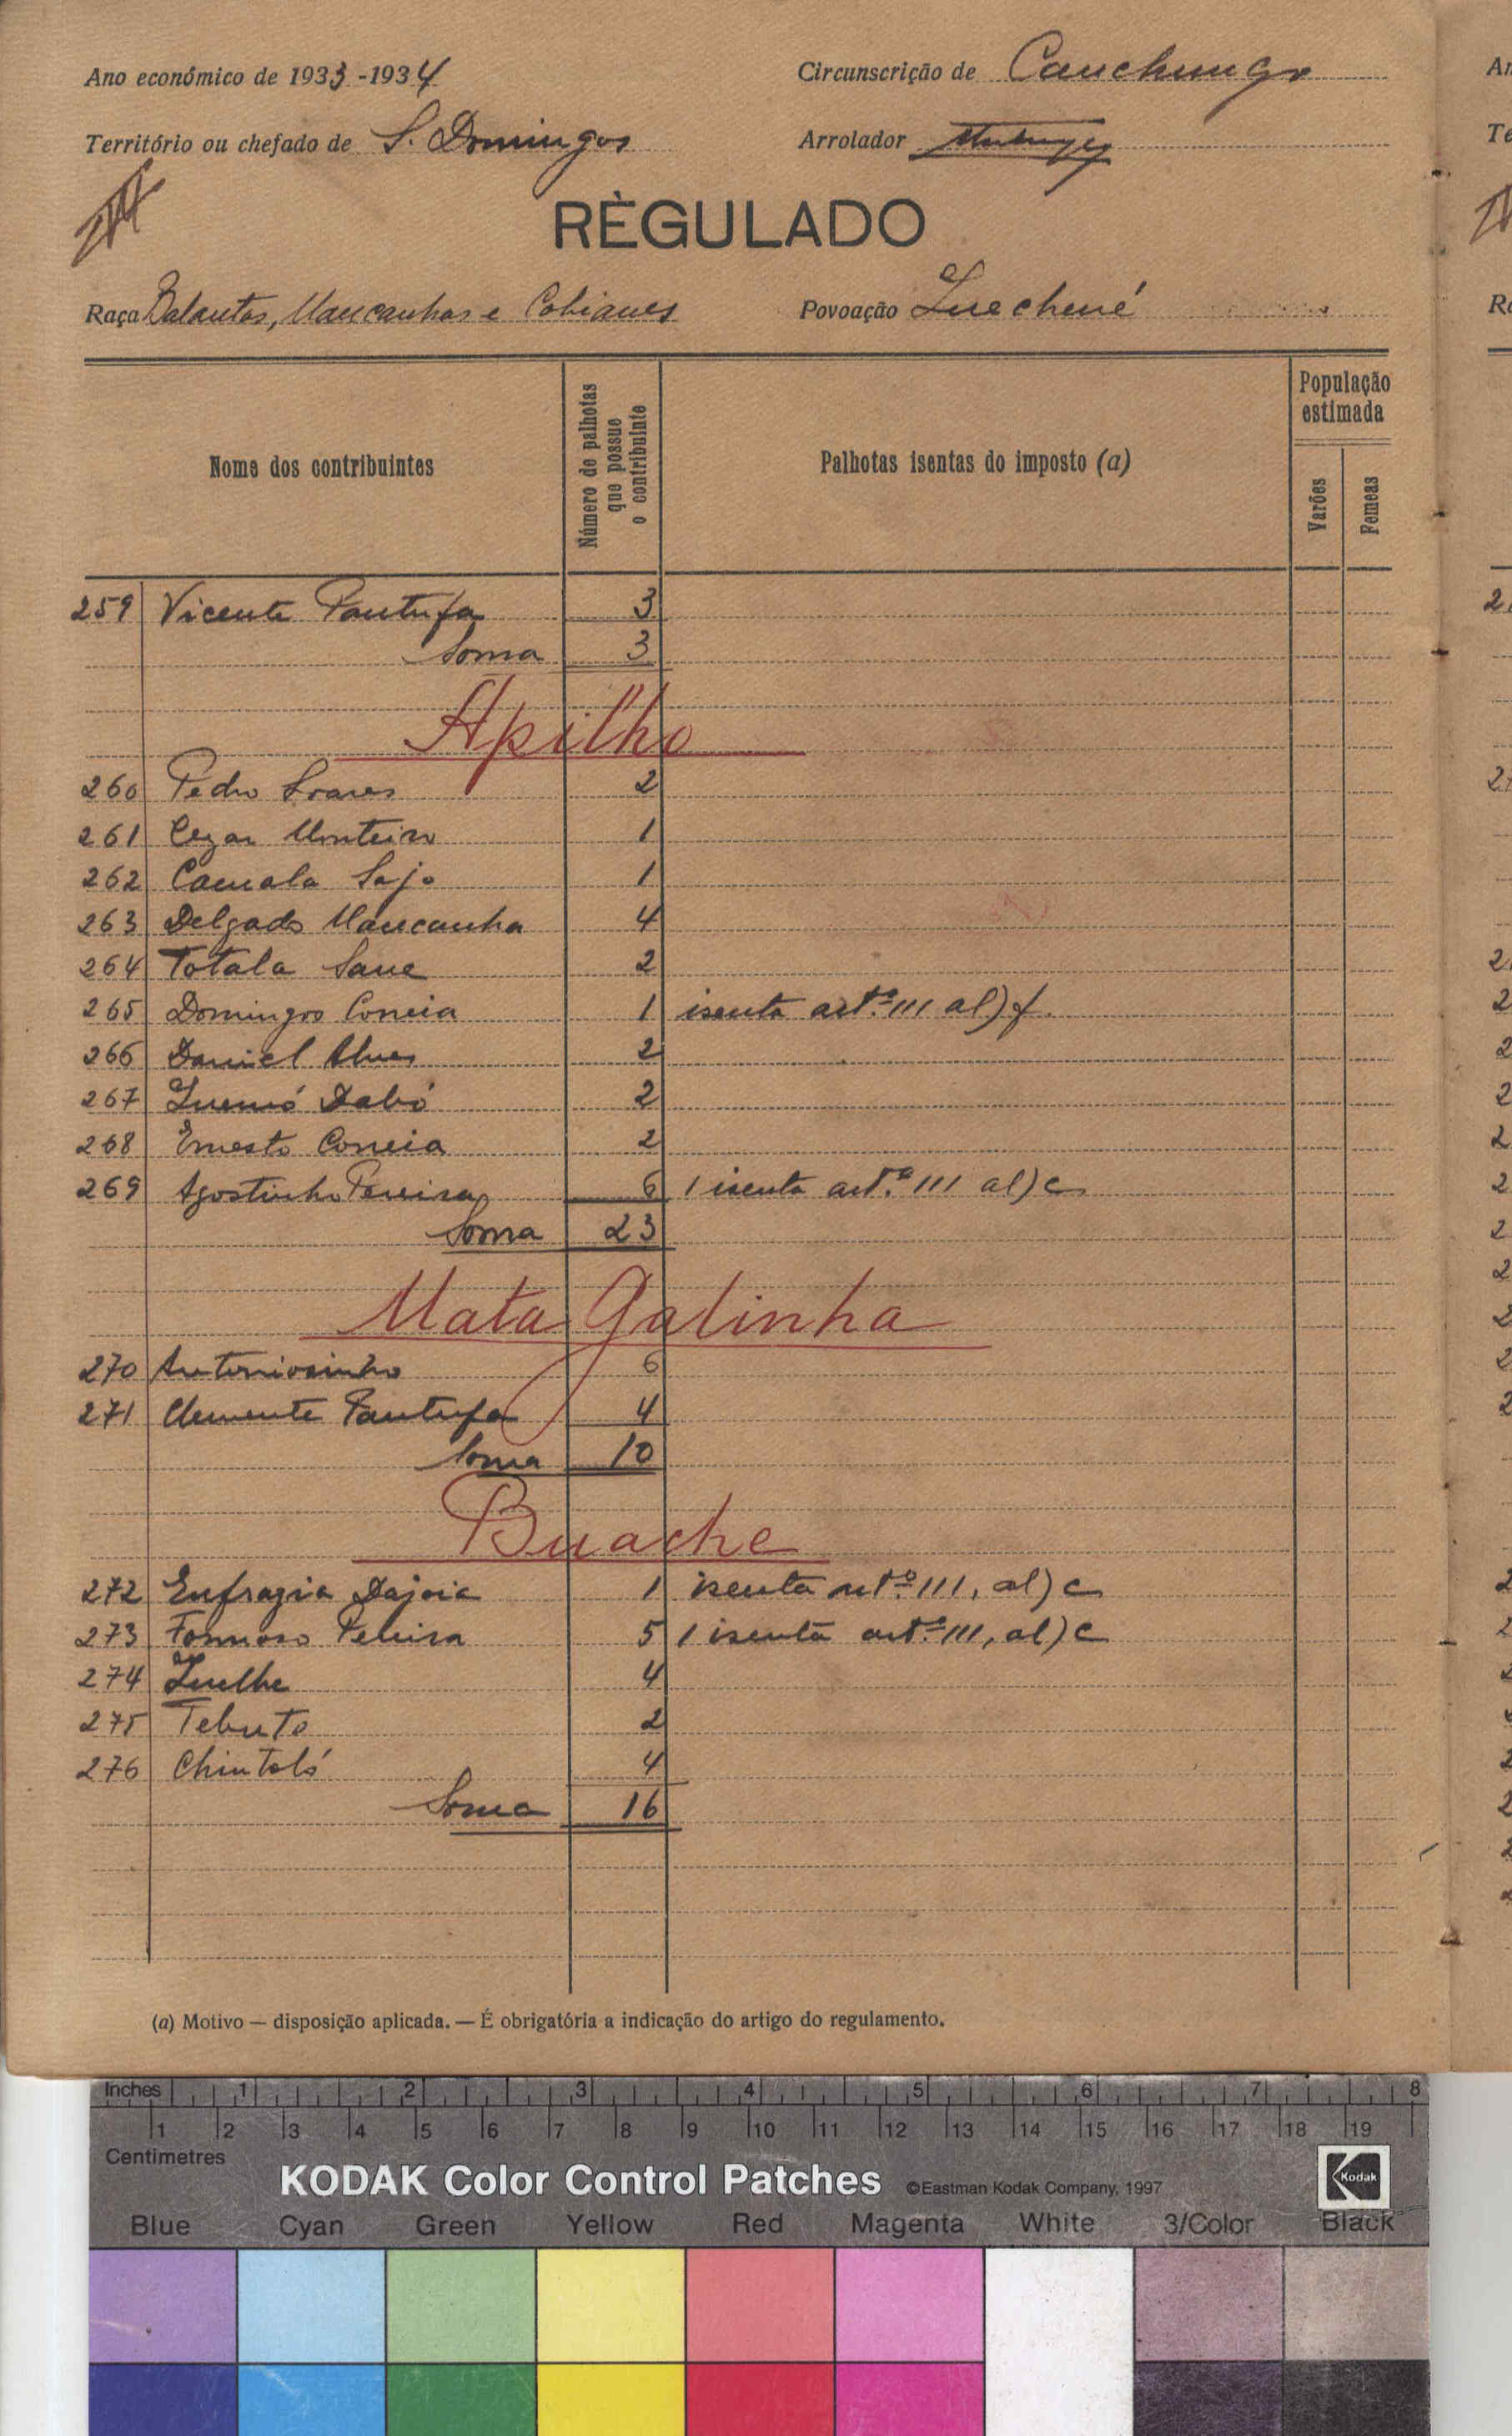 Ano económico de 1933-1934
Circunscrição de Cauchungo
Território ou chefado de S. Domingos
Arrolador
RÈGULADO
Raça Balantas, Mancanhas e Cobianes
Povoação Iuechené
Nome dos contribuintes
Número de palhotas que possue o contribuinte
Palhotas isentas do imposto (a)
População estimada
Varões
Femeas
259 Vicente Pantufa 3
Soma 3
Apilho
260 Pedro Soares 2
261 Cezar Monteiro 1
262 Camala Sajo 1
263 Delgado Mancanha 4
264 Totala Sane 2
265 Domingos Correia 1 isenta art.º 111 al) f.
266 Daniel Alves 2
267 Iuemó Dabó 2
268 Ernesto Correia 2
269 Agostinho Pereira 6 1 isenta art.º 111 al) c
Soma 23
Mata Galinha
270 Antoniosinho 6
271 Clemente Pantufa 4
Soma 10
Buache
272 Eufrazia Dajoia 1 isenta art.º 111, al) c
273 Formoso Pereira 5 1 isenta art.º 111, al) c
274 Iuelhe 4
275 Tebuto 2
276 Chintoló 4
Soma 16
(a) Motivo — disposição aplicada. — É obrigatória a indicação do artigo do regulamento.
Inches 1 2 3 4 5 6 7 8
1 2 3 4 5 6 7 8 9 10 11 12 13 14 15 16 17 18 19
Centimetres
KODAK Color Control Patches ©Eastman Kodak Company, 1997 Kodak
Blue Cyan Green Yellow Red Magenta White 3/Color Black